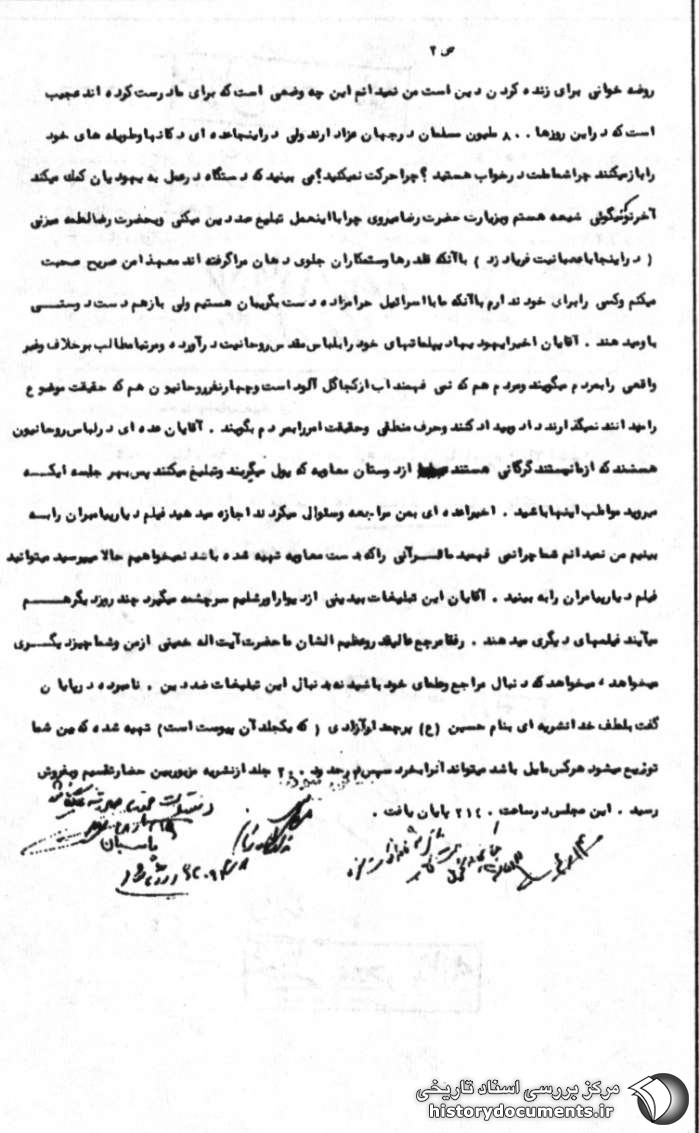 ص ۲
روضه خوانی برای زنده کردن دین است من نمیدانم این چه وضعی است که برای ما درست کرده اند عجیب
است که در این روزها ۸۰۰ ملیون مسلمان در جهان عزادارند ولی در اینجا عده ای دکانها و طویله های خود
را باز میکنند چرا شما ملت در خواب هستید ؟ چرا حرکت نمیکنید؟ می بینید که دستگاه در عمل به یهودیان کمک میکند
آخر تو میگوئی شیعه هستم و بزیارت حضرت رضا میروی چرا با اینعمل تبلیغ ضد دین میکنی و بحضرت رضا لطمه میزنی
( در اینجا با عصبانیت فریاد زد ) با آنکه قلدرها و ستمکاران جلوی دهان مرا گرفته اند معهذا من صریح صحبت
میکنم و کسی را برای خود ندارم با آنکه ما با اسرائیل حرامزاده دست بگریبان هستیم ولی باز هم دست دوستی
باو میدهند . آقایان اخیرا یهود بهاد دیپلماتهای خود را بلباس مقدس روحانیت در آورده و مرتبا مطالب بر خلاف و غیر
واقعی را بمردم میگویند و مردم هم که نمی فهمند آب از کجا گل آلود است و چهار نفر روحانیون هم که حقیقت موضوع
را میدانند نمیگذارند داد و بیداد کنند و حرف منطقی و حقیقت امر را بمردم بگویند . آقایان عده ای در لباس روحانیون
هستند که از ما نیستند گرگانی هستند از دوستان معاویه که پول میگیرند و تبلیغ میکنند پس بهر جلسه ایکه
میروید مواظب اینها باشید . اخیرا عده ای بمن مراجعه و سئوال میکردند اجازه میدهید فیلم دیار پیامبران را به
بینیم من نمیدانم شما چرا نمی فهمید ما قرآنی را که بدست معاویه تهیه شده باشد نمیخواهیم حالا میپرسید میتوانید
فیلم دیار پیامبران را به بینید . آقایان این تبلیغات بیدینی از دیوار اورشلیم سرچشمه میگیرد چند روز دیگر هم
میآیند فیلمهای دیگری میدهند . رفقا مرجع عالیقدر و عظیم الشان ما حضرت آیت اله خمینی از من و شما چیز دیگری
میخواهد ه میخواهد که دنبال مراجع و علمای خود باشید نه بدنبال این تبلیغات ضد دین . نامبرده در پایان
گفت بلطف خدا نشریه ای بنام حسین (ع) پرچمدار آزادی ( که یکجلد آن پیوست است) تهیه شده که بین شما
توزیع میشود هر کس مایل باشد میتواند آنرا بخرد سپس در حدود ۲۰۰ جلد از نشریه مزبور بین حضار تقسیم و بفروش
رسید . این مجلس در ساعت ۲۱۴۰ پایان یافت .
پاسبان
مرکز بررسی اسناد تاریخی
historydocuments.ir